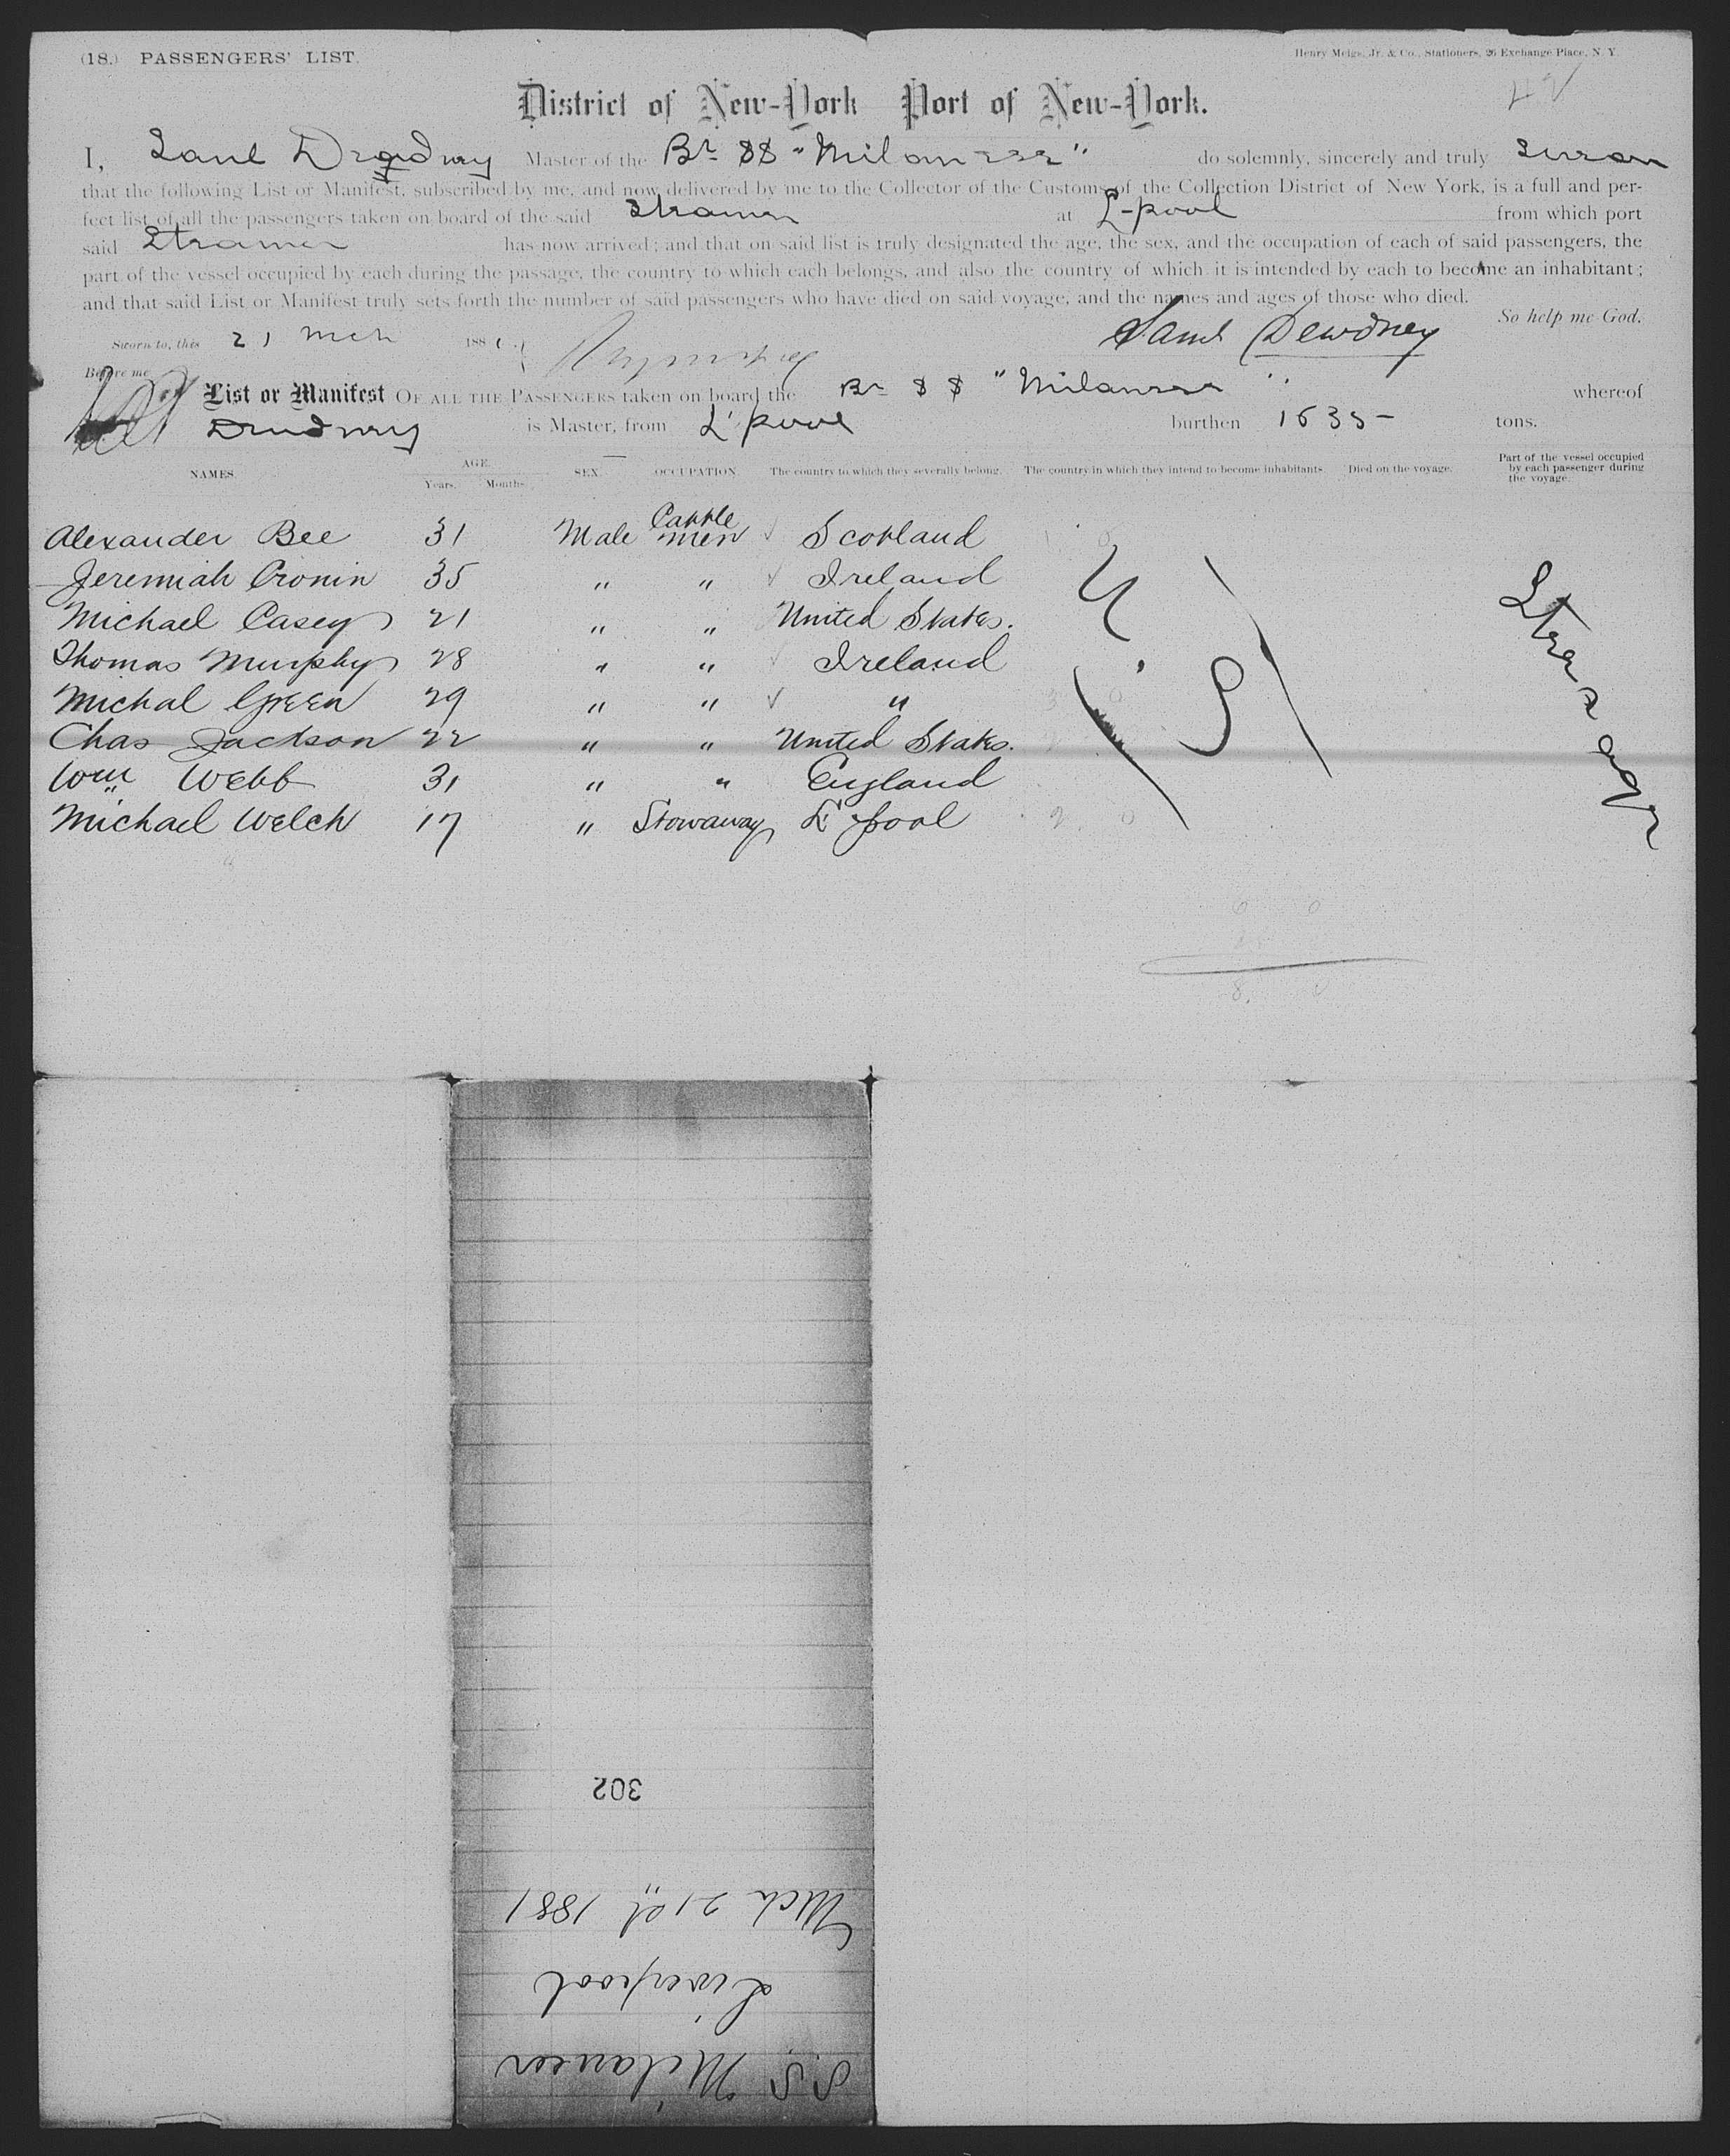 (18.) PASSENGERS' LIST.
Henry Meigs, Jr. & Co., Stationers, 26 Exchange Place, N. Y.
District of New-York Port of New-York.
I, Saml Dewdney Master of the Br SS "Milanese" do solemnly, sincerely and truly swear
that the following List or Manifest, subscribed by me, and now delivered by me to the Collector of the Customs of the Collection District of New York, is a full and per-
fect list of all the passengers taken on board of the said Steamer at L-pool from which port
said Steamer has now arrived; and that on said list is truly designated the age, the sex, and the occupation of each of said passengers, the
part of the vessel occupied by each during the passage, the country to which each belongs, and also the country of which it is intended by each to become an inhabitant;
and that said List or Manifest truly sets forth the number of said passengers who have died on said voyage, and the names and ages of those who died.
So help me God.
Sworn to, this 21 Mch 1881.
Saml Dewdney
Before me
List or Manifest OF ALL THE PASSENGERS taken on board the Br SS "Milanese" whereof
Dewdney is Master, from L'pool burthen 1635- tons.
NAMES. AGE. Years. Months. SEX. OCCUPATION. The country to which they severally belong. The country in which they intend to become inhabitants. Died on the voyage. Part of the vessel occupied by each passenger during the voyage.
Alexander Bee 31 Male Cattle men Scotland
Jeremiah Cronin 35 " " Ireland
Michael Casey 21 " " United States.
Thomas Murphy 28 " " Ireland
Michal Green 29 " " "
Chas Jackson 22 " " United States.
Wm Webb 31 " " England
Michael Welch 17 " Stowaway L'pool
U.S.
Steerage
302
Mch 21st 1881
Liverpool
S.S. Milanese